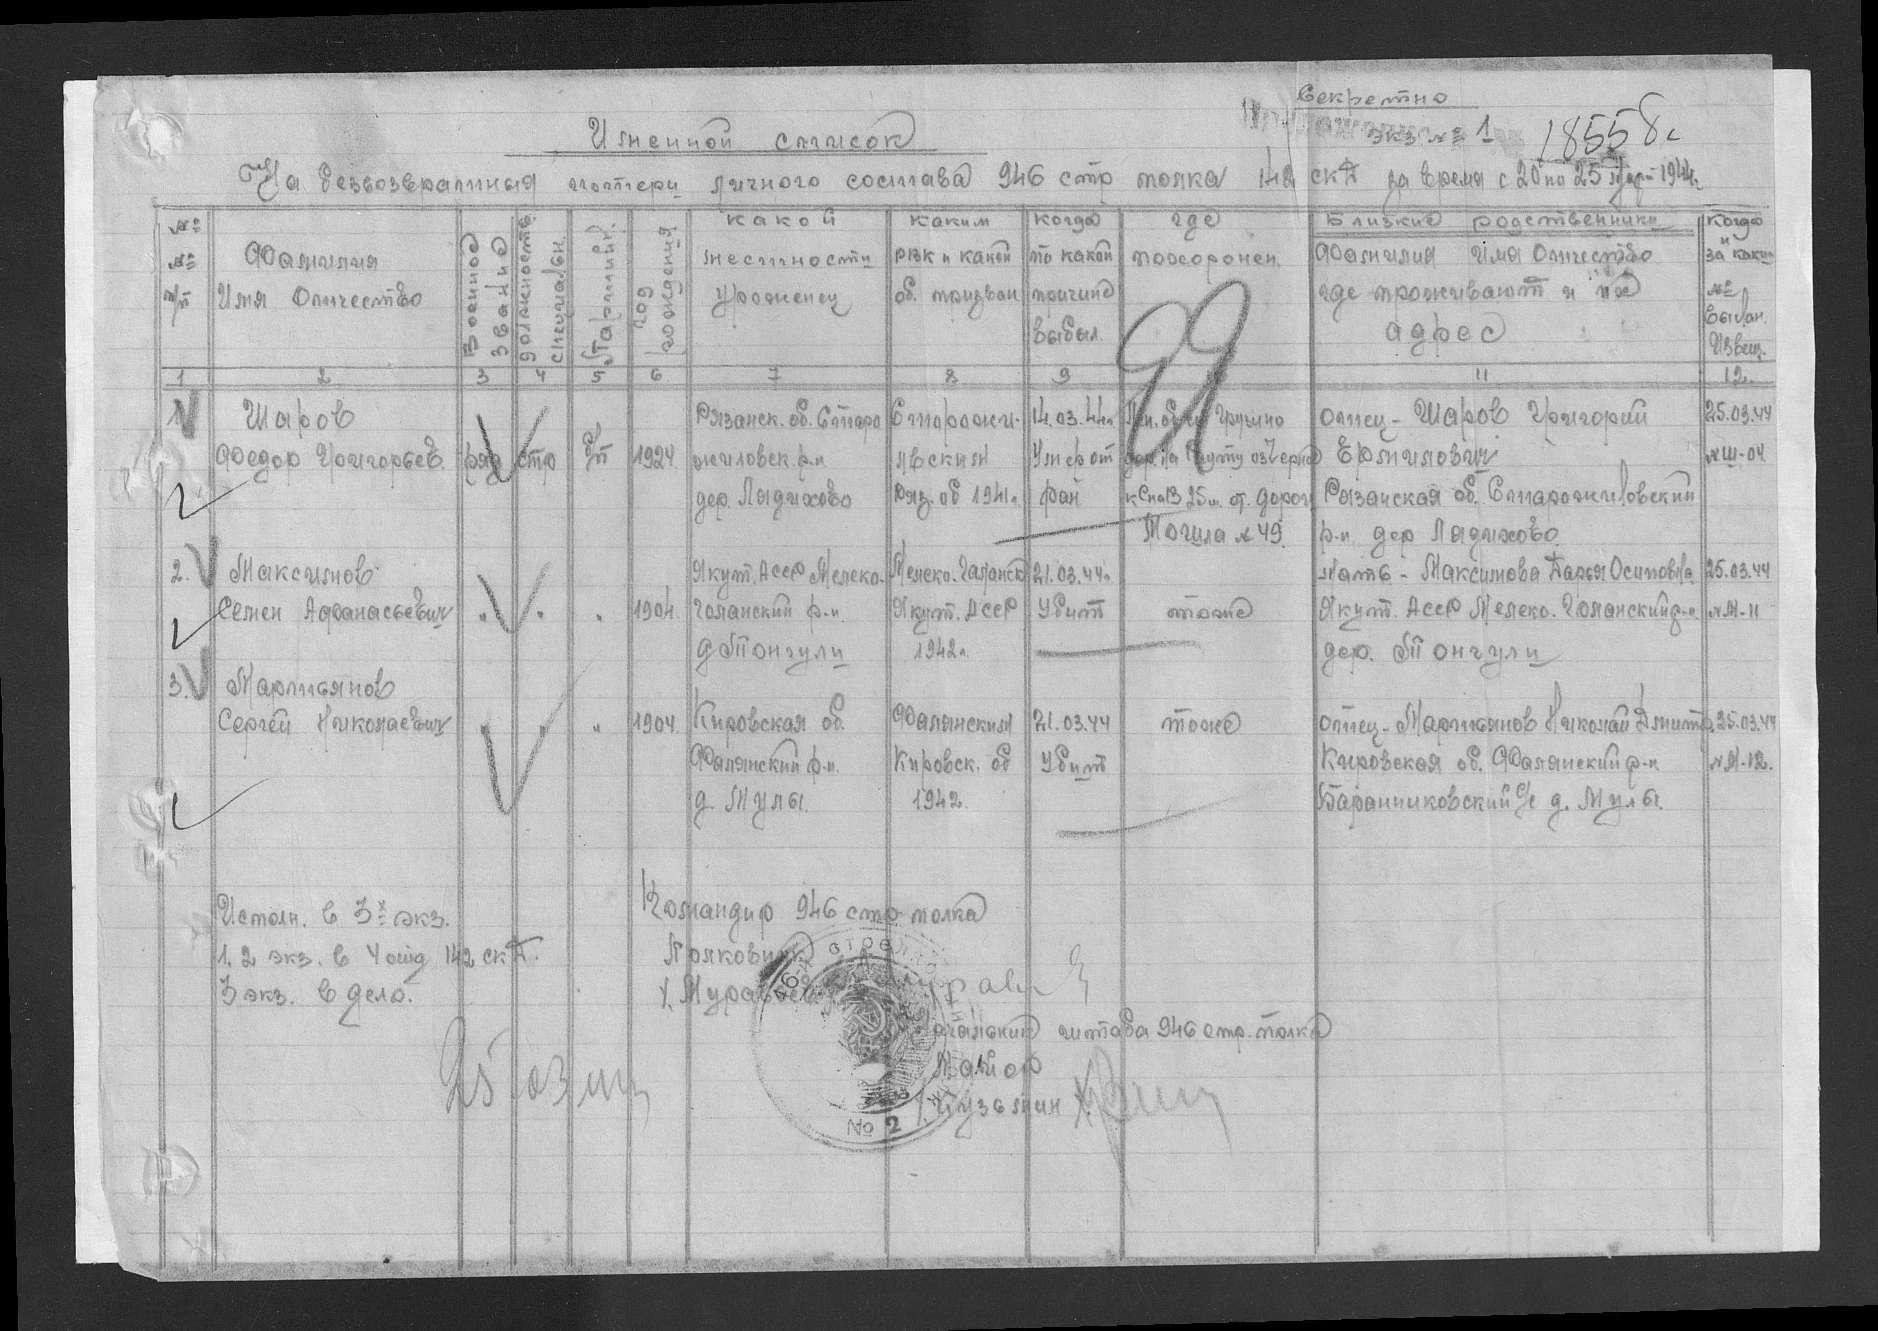 Секретно
экз № 1
18558с
Именной список
На безвозвратныя потери личного состава 946 стр полка 142 скд за время с 20 по 25 мар 1944г
№ №
п/п
Фамилия
Имя Отчество
Военное звание
должность специальн.
Партийн.
год рождения
какой
местности
уроженец
каким
рвк и какой
об. призван
когда
по какой
причине
выбыл
где
похоронен
Близкие родственники
Фамилия Имя Отчество
где проживают и их
адрес
Когда
и
за каким
№
выслан.
Извещ.
1 2 3 4 5 6 7 8 9 11 12.
1 Шаров Рязанск. об. Старо Старожи- 14.03.44г. отец - Шаров Григорий 25.03.44
Федор Григорьевич ряд стр б/п 1924 жиловск. р-н ловский Умер от Ермилович №Ш-04
дер. Лядихово Ряз. об 1941г. ран 25м. от дороги Рязанская об. Старожиловский
Могила № 49. р-н дер Лядихово
2. Максимов Якут. Асср Мегеко- 21.03.44г. мать - Максимова Дарья Осиповна 25.03.44
Семен Афанасьевич " " " 1904 Якут. Асср Убит тоже Якут. Асср №М-11
1942г. дер.
3. Мартьянов
Сергей Николаевич " " " 1904 Кировская об. Фаленский 21.03.44 тоже отец - Мартьянов Николай Дмитр. 25.03.44
Фаленский р-н. Кировск. об Убит Кировская об. Фаленский р-н №М-12.
д. Мулы. 1942 Баранниковский с/с д. Мулы.
Исполн. в 3х экз.
1, 2 экз. в 4 отд 142 скд.
3 экз. в дело.
Командир 946 стр полка
Полковник
/ Муравьев
Начальник штаба 946 стр. полка
Майор
/ Кузьмин /
№ 2